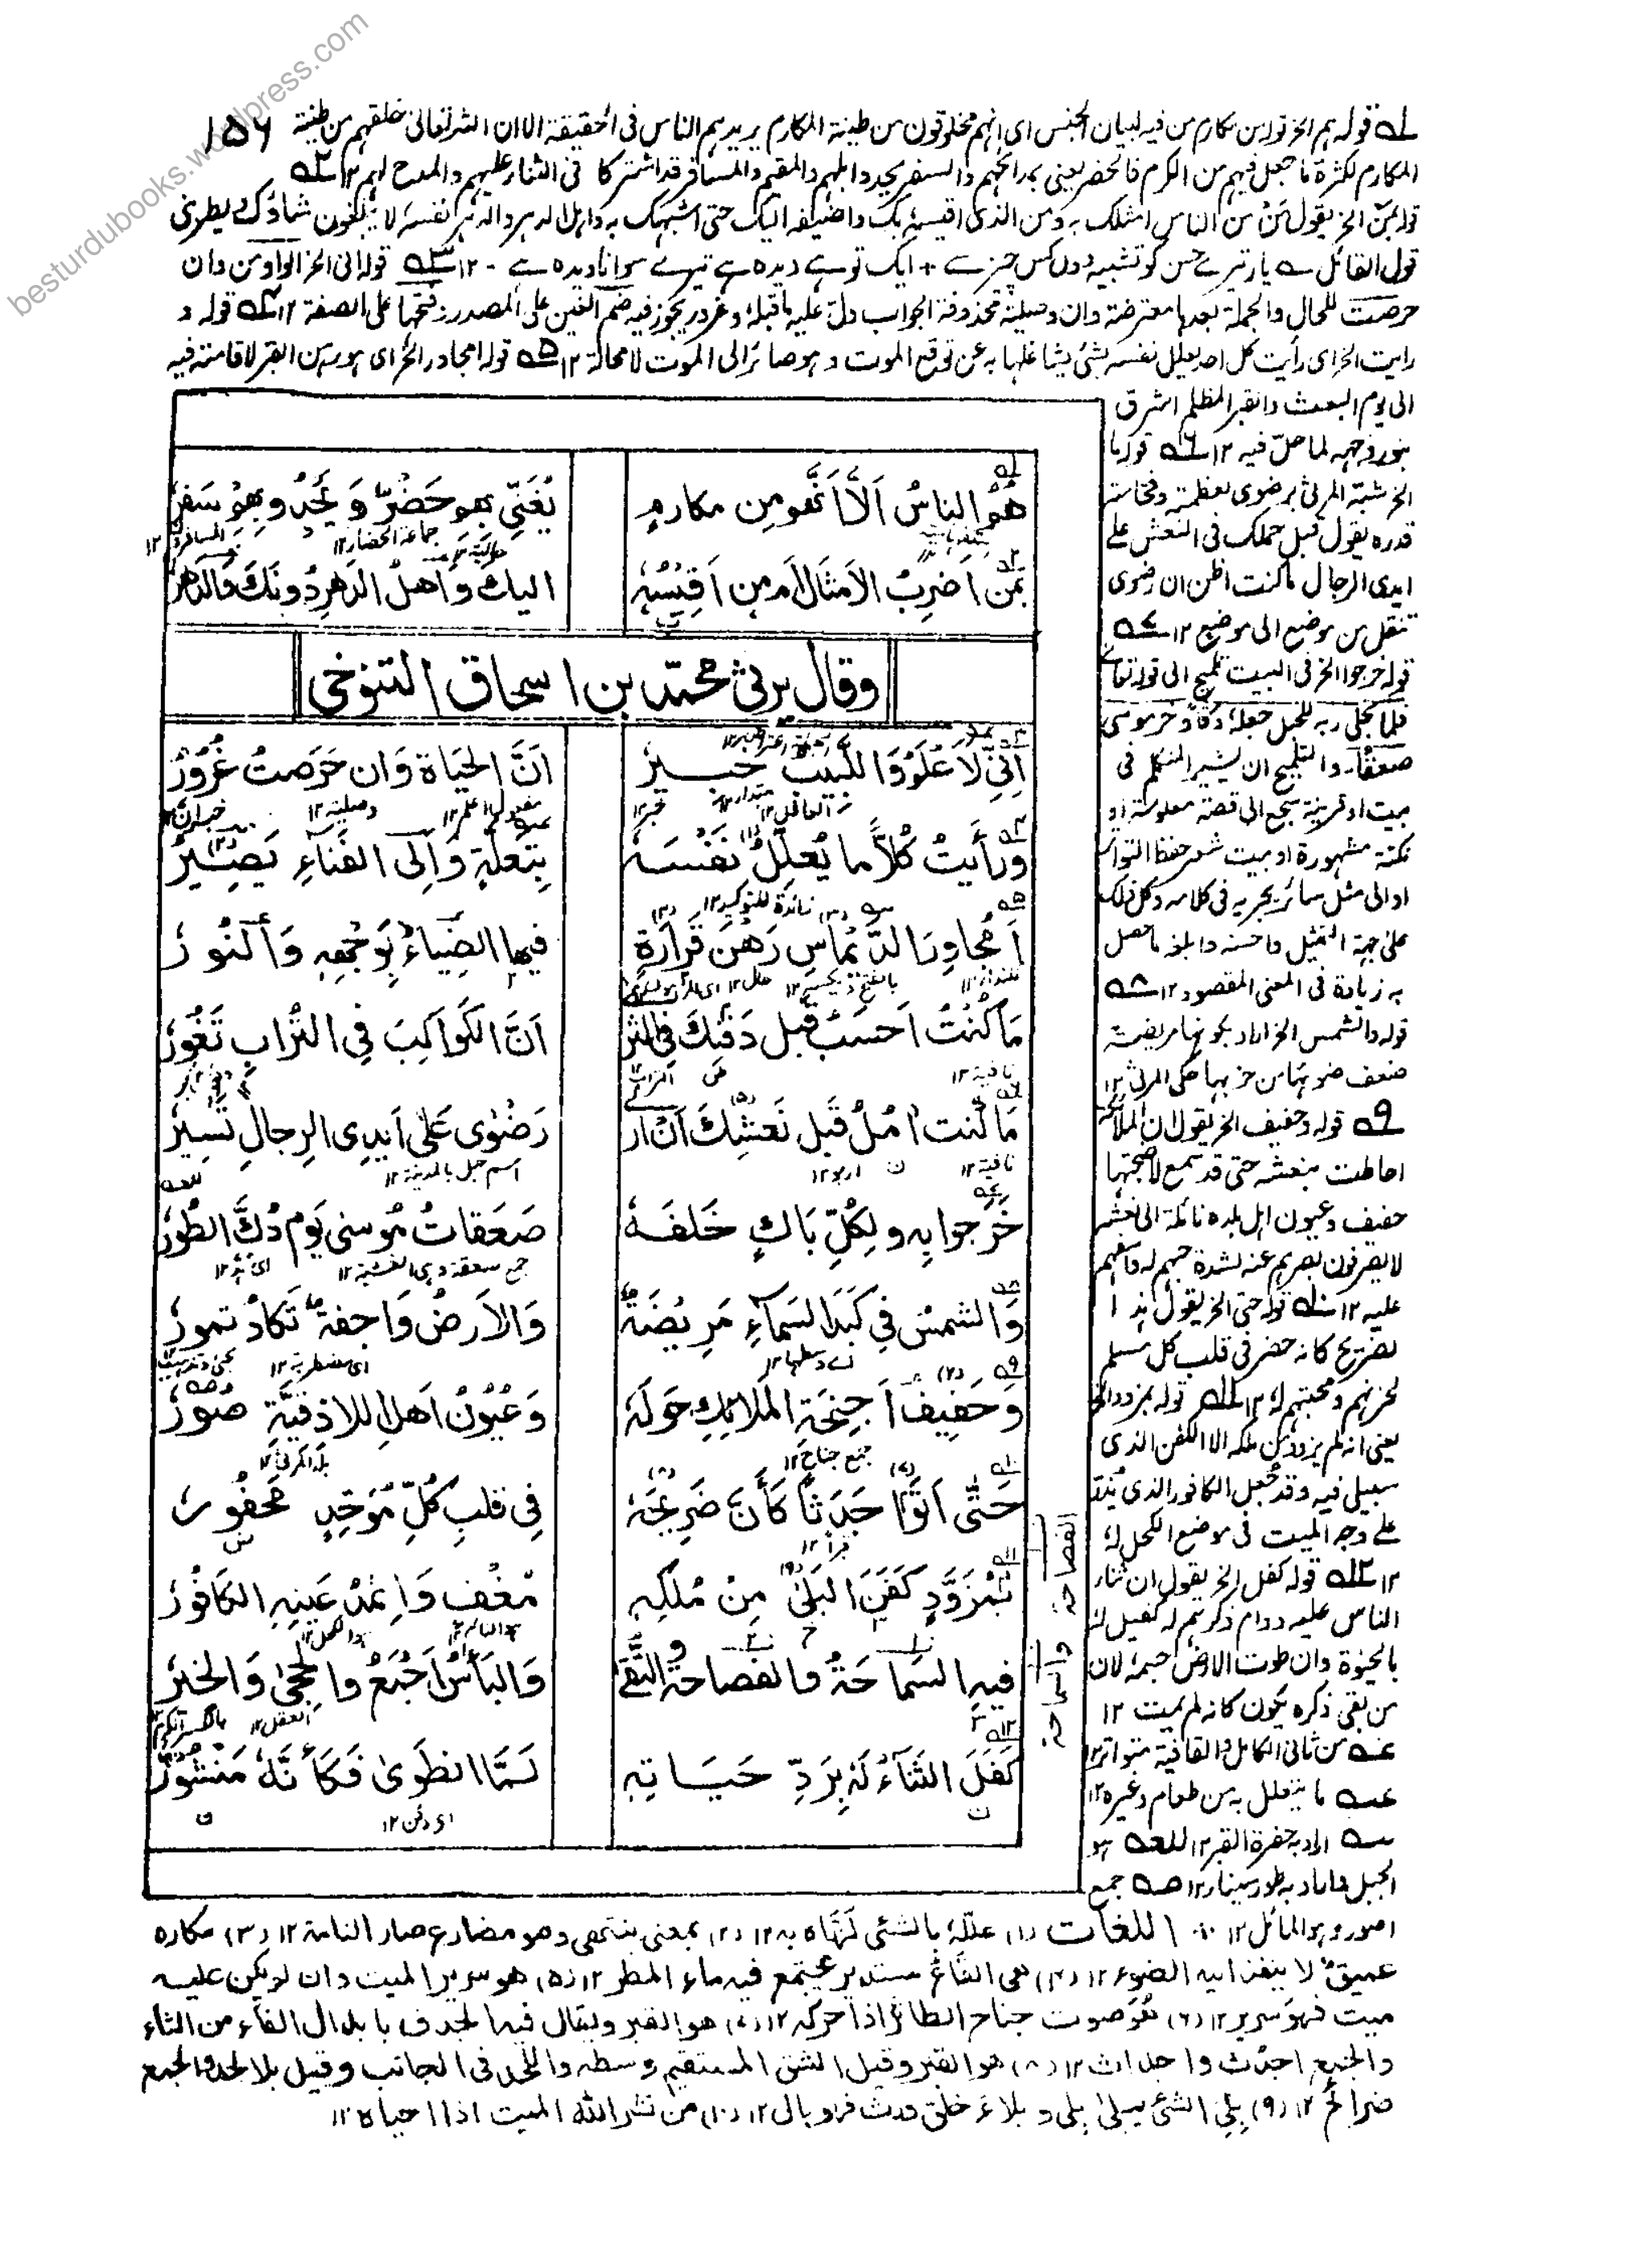 besturdubooks.wordpress.com
١٥٦
قوله هم الخ قوله من مكارم من فيه لبيان الجنس اى انهم مخلوقون من طينة المكارم يريد هم الناس فى الحقيقة الا ان الله تعالى خلقهم من طينة
المكارم لكثرة ما جعل فيهم من الكرم فالحضر يغنى بمدائحهم والسفر يحدو ابلهم والمقيم والمسافر قد اشتركا فى الثناء عليهم والمدح لهم ١٢
قوله بمن الخ يقول من من الناس امثلك به ومن الذى اقيسه بك واضيفه اليك حتى اشبهك به واهل الدهر والدهر نفسه لا يبلغون شاوك
قول القائل يار تيرے حسن كو تشبيه دوں كس چيز سے + ايك تو ہے ديده ہے تيرے سوا ناديده ہے - ١٢ قوله انى الخ الواو من وان
حرصت للحال والجملة بعدها معترضة وان وصلية محذوفة الجواب دل عليه ما قبله وغرور يجوز فيه ضم الغين على المصدر وفتحها على الصفة ١٢ قوله و
رايت الخ اى رأيت كل احد يعلل نفسه بشئ يشاغلها به عن توقع الموت وهو صائر الى الموت لا محالة ١٢ قوله امجاور الخ اى هو رهن القبر لاقامته فيه
الى يوم البعث والقبر المظلم اشرق
بنور وجهه لما حل فيه ١٢ قوله ما
الخ شبه المرثى برضوى لعظمته وفخامة
قدره يقول قبل حملك فى النعش على
ايدى الرجال ما كنت اظن ان رضوى
تنقل من موضع الى موضع ١٢
قوله خرجوا الخ فى البيت تلميح الى قوله تعالى
فلما تجلى ربه للجبل جعله دكا وخر موسى
صعقا والتلميح ان يشير المتكلم فى
بيت او قرينة سجع الى قصة معلومة او
نكتة مشهورة او بيت شعر حفظ
او الى مثل سائر يجريه فى كلامه وكل ذلك
على جهة التمثيل واحسنه وابلغه ما حصل
به زيادة فى المعنى المقصود ١٢
قوله والشمس الخ اراد بكونها مريضة
ضعف ضوئها من حزنها على المرثى ١٢
قوله وحفيف الخ يقول ان الملائكة
احاطت بنعشه حتى قد سمع لاجنحتها
حفيف وعيون اهل بلده مائلة الى نعشه
لا يصرفون بصرهم عنه لشدة حبهم له واسفهم
عليه ١٢ قوله حتى الخ يقول هذا
لضريح كانه حضر فى قلب كل مسلم
لحزنهم ومحبتهم له ١٢ قوله بمزود الخ
يعنى انه لم يزود من ملكه الا الكفن الذى
سيبلى فيه وقد جعل الكافور الذى
على وجه الميت فى موضع الكحل له
١٢ قوله كفل الخ يقول ان ثناء
الناس عليه ودوام ذكرهم له كفيل له
بالحيوة وان طوت الارض جسمه لان
من بقى ذكره يكون كانه لم يمت ١٢
من ثانى الكامل والقافية متواتر ١٢
ما يتعلل به من طعام وغيره ١٢
اراد به حفرة القبر ١٢ هو
الجبل واراد به طور سيناء ١٢ جمع
هُمُ الناسُ اَلّا اَنَّهُم مِن مكارمٍ يُغَنِّي بِهِم حَضرٌ وَ يَحدُو بِهِم سَفرٌ
جماعة الحضار ١٢
بِمَن اَضرِبُ الاَمثَالَ اَم مَن اَقِيسُهٗ اليك وَ اَهلُ الدَهرِ دُونَكَ وَالدَهرُ
وقال يرثى محمّد بن اسحاق التنوخى
اِنِّي لَاَعلَمُ وَاللَّبِيبُ خبيرٌ اَنَّ الحَيَاةَ وَاِن حَرَصتُ غُرُورٌ
وصلية ١٢ خبر ان
ورَأَيتُ كُلًّا ما يُعلِّلُ نَفسَهٗ بِتَعلَّةٍ وَاِلَى الفَنَاءِ يَصِيرُ
زائدة للتوكيد ١٢
اَمُجاوِرَ الدَّيماسِ رَهنَ قَرارَةٍ فيها الضِياءُ بِوَجهِهٖ وَالنُورُ
مَا كُنتُ اَحسَبُ قَبلَ دَفنِكَ فِى الثَرى اَنَّ الكَوَاكِبَ فِي التُرَابِ تَغُورُ
نافية ١٢
مَا كُنت اٰمُلُ قَبلَ نَعشِكَ اَن اَرى رَضوٰى عَلىٰ اَيدِى الرِجالِ تَسِيرُ
نافية ١٢ ارجو ١٢ اسم جبل بالمدينة ١٢
خَرَجوا بِهٖ ولِكُلِّ بَاكٍ خَلفَهٗ صَعَقاتُ مُوسىٰ يَوم دُكَّ الطُورُ
جمع صعقة وهى الغشية ١٢
وَالشمسُ فِي كَبَدِ السَمَاءِ مَرِيضَةٌ وَالاَرضُ وَاجِفةٌ تَكادُ تمورُ
اے وسطها ١٢ اى مضطربة ١٢
وَحَفِيفُ اَجنِحَةِ المَلَائِكِ حَولَهٗ وَعُيُونُ اَهلِ اللاذقِيَّةِ صُورُ
جمع جناح ١٢ بلد المرثى ١٢
حَتّٰى اَتَوا جَدَثاً كَاَنَّ ضَرِيحَهٗ فِي قلبِ كُلِّ مُوَحِّدٍ مَحفُورُ
قبراً ١٢
بِمُزَوَّدٍ كَفَنَ البِلىٰ مِن مُلكِهٖ مُغفٍ وَاِثمِدُ عَينِهِ الكَافُورُ
فيهِ السَماحَةُ والفصاحةُ والتُّقىٰ وَالبَأسُ اَجمَعُ والحِجىٰ وَالخِيرُ
الفصاحة والسماحة
العقل ١٢
كَفَلَ الثَنَاءُ لَهٗ بِرَدِّ حَيَاتِهٖ لَمَّا انطَوىٰ فَكَاَنَّهٗ مَنشُورٌ
اى دفن ١٢
اصور وهو المائل ١٢ اللغات (١) علّلهٗ بالشئى لَهَّاه به ١٢ (٢) بمعنى ينتهى وهو مضارع صار التامة ١٢ (٣) مكان
عميقٌ لا ينفذ اليه الضوء ١٢ (٤) هى القاعُ مستدير يجتمع فيه ماء المطر ١٢ (٥) هو سرير الميت وان لم يكن عليه
ميت فهو سرير ١٢ (٦) هُوَ صوت جناح الطائر اذا حركه ١٢ (٧) هو القبر ويقال فيه الجدف بابدال الفاء من الثاء
والجمع اجدُث واجداث ١٢ (٨) هو القبر وقيل الشق المستقيم وسطه واللحد فى الجانب وقيل بلا لحد والجمع
ضرائح ١٢ (٩) بلِىَ الشئ يبلىٰ بِلى و بلاءً خلق ورث فهو بال ١٢ (١٠) من نشر اللّٰه الميت اذا احياه ١٢